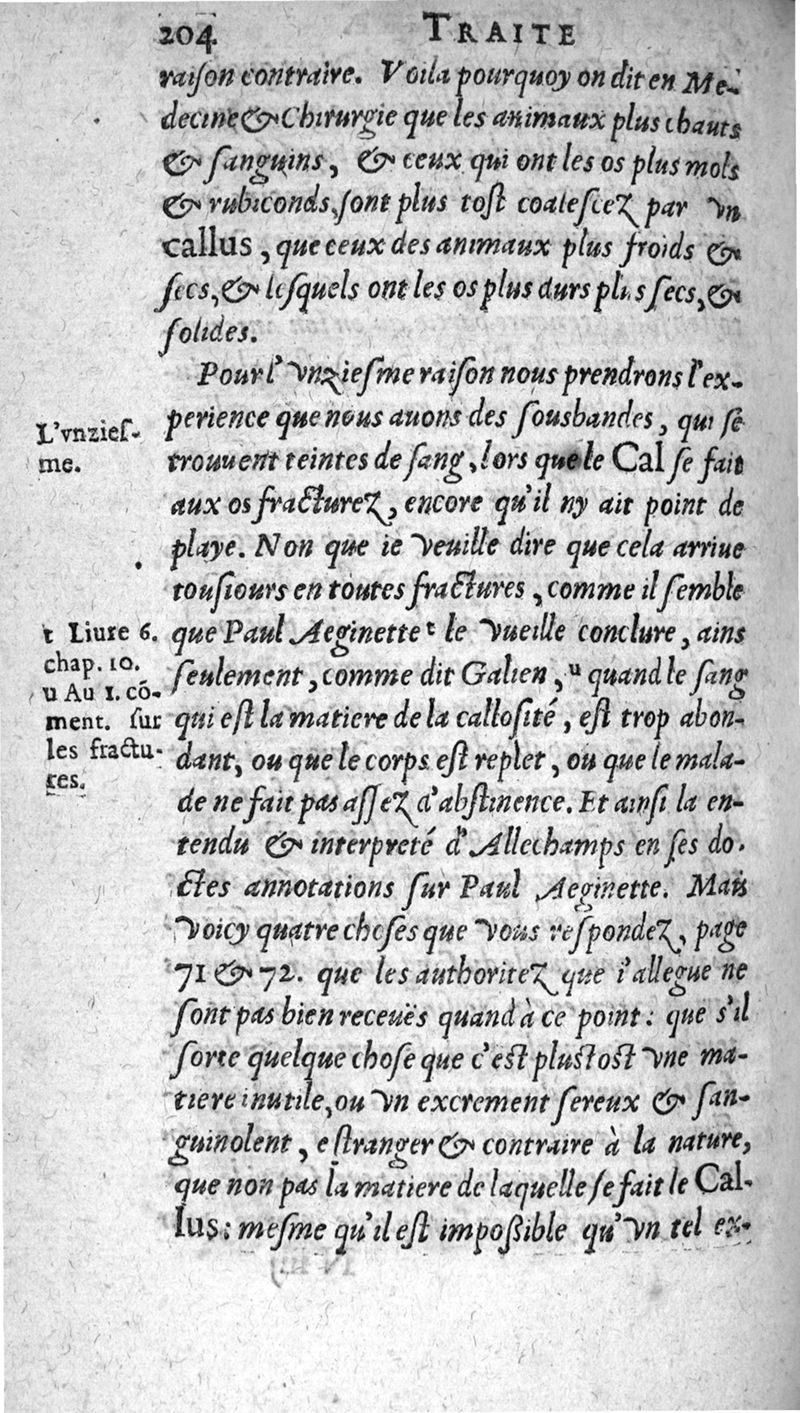 204 TRAITE
raiſon contraire. Voila pourquoy on dit en Me-
decine & Chirurgie que les animaux plus chauts
& ſanguins, & ceux qui ont les os plus mols
& rubiconds, ſont plus toſt coaleſcez par vn
callus, que ceux des animaux plus froids &
ſecs, & leſquels ont les os plus durs plus ſecs, &
ſolides.
Pour l'vnzieſme raiſon nous prendrons l'ex-
perience que nous auons des ſousbandes, qui ſe
trouuent teintes de ſang, lors que le Cal ſe fait
aux os fracturez, encore qu'il ny ait point de
playe. Non que ie veuille dire que cela arriue
touſiours en toutes fractures, comme il ſemble
que Paul Aeginette t le vueille conclure, ains
ſeulement, comme dit Galien, u quand le ſang
qui eſt la matiere de la calloſité, eſt trop abon-
dant, ou que le corps eſt replet, ou que le mala-
de ne fait pas aſſez d'abſtinence. Et ainſi la en-
tendu & interpreté d'Allechamps en ſes do-
ctes annotations ſur Paul Aeginette. Mais
voicy quatre choſes que vous reſpondez, page
71 & 72. que les authoritez que i'allegue ne
ſont pas bien receuës quand à ce point: que s'il
ſorte quelque choſe que c'eſt pluſtoſt vne ma-
tiere inutile, ou vn excrement ſereux & ſan-
guinolent, eſtranger & contraire à la nature,
que non pas la matiere de laquelle ſe fait le Cal-
lus: meſme qu'il eſt impoſſible qu'vn tel ex-
L'vnzieſ-
me.
t Liure 6.
chap. 10.
u Au 1. cõ-
ment. ſur
les fractu-
res.